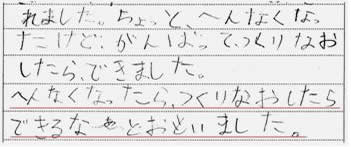 れました。ちょっと、へんなくなっ
たけど、がんばって、つくりなお
したら、できました。
へんなくなったら、つくりなおしたら
できるなぁとおもいました。